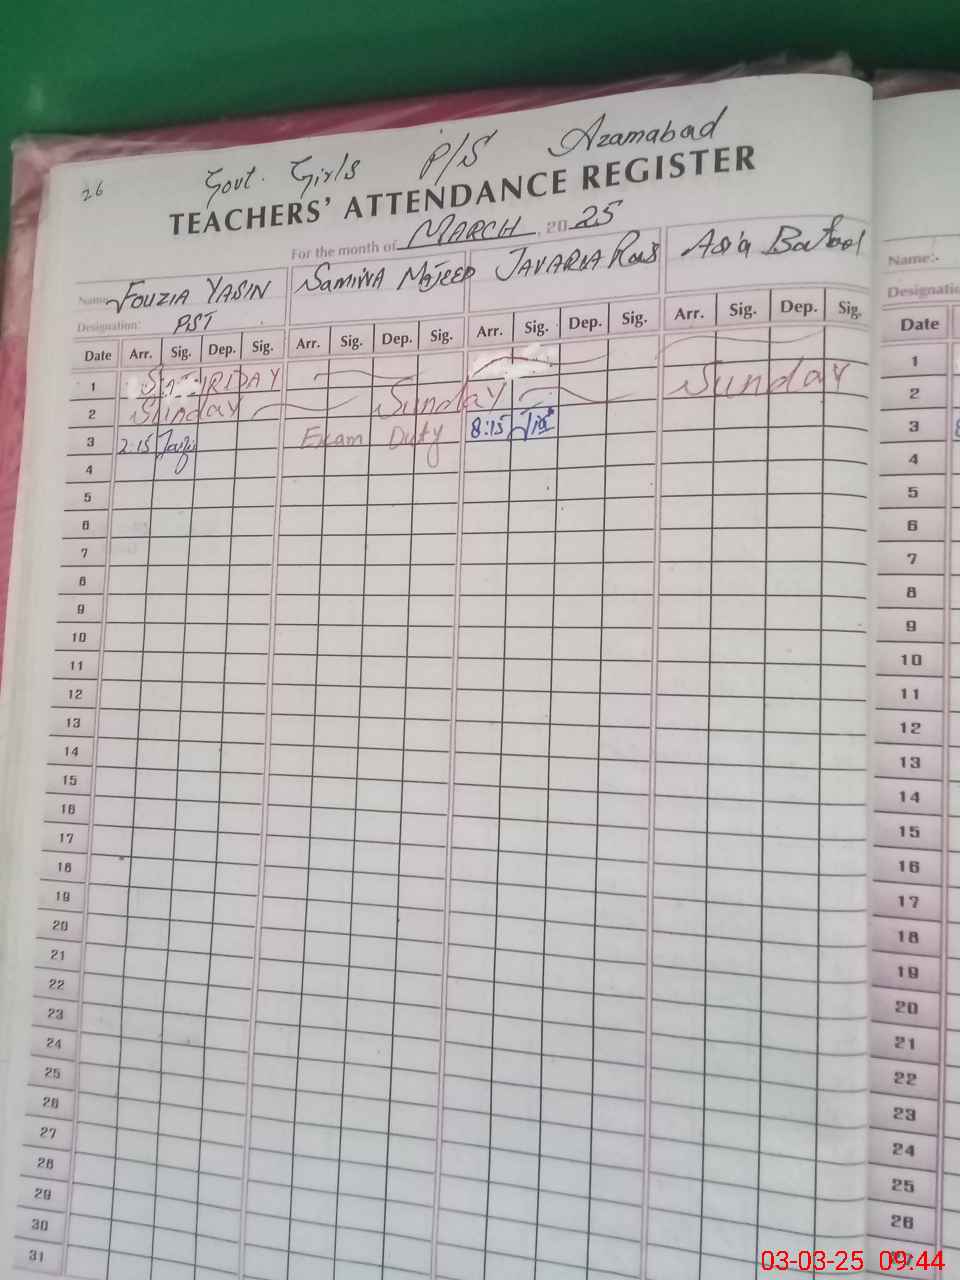 26
Govt. Girls P/S Azamabad
TEACHERS' ATTENDANCE REGISTER
For the month of MARCH, 2025
Name: FOUZIA YASIN SAMINA MAJEED JAVARIA Asia Batool
Designation: PST
Date Arr. Sig. Dep. Sig. Arr. Sig. Dep. Sig. Arr. Sig. Dep. Sig. Arr. Sig. Dep. Sig.
1 SATURDAY
2 Sunday Sunday Sunday
3 2:15 Exam Duty 8:15
4
5
6
7
8
9
10
11
12
13
14
15
16
17
18
19
20
21
22
23
24
25
26
27
28
29
30
31
Name:-
Designatio
Date
1
2
3 8
4
5
6
7
8
9
10
11
12
13
14
15
16
17
18
19
20
21
22
23
24
25
26
27
03-03-25 09:44